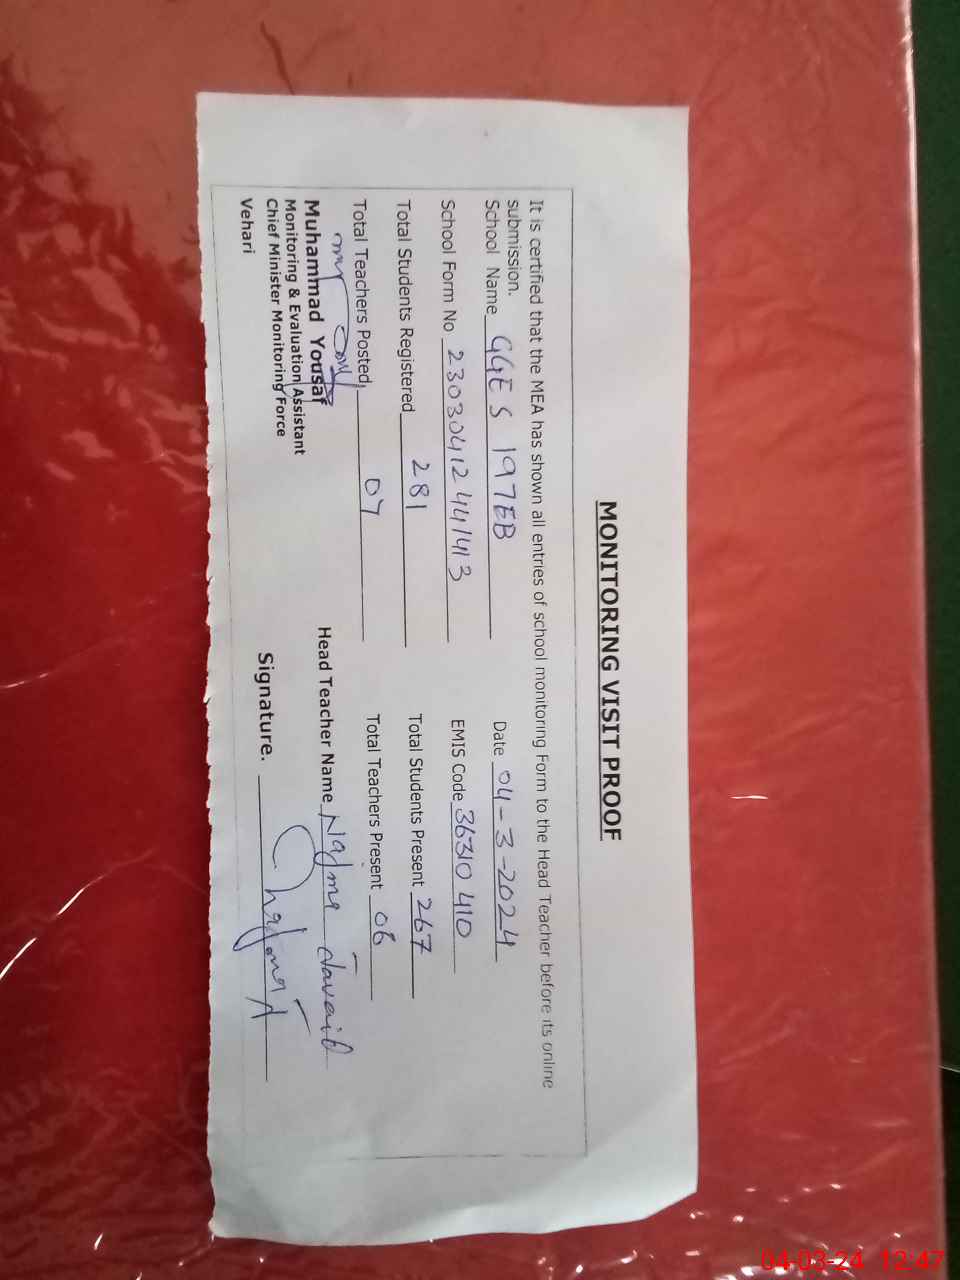 MONITORING VISIT PROOF
It is certified that the MEA has shown all entries of school monitoring Form to the Head Teacher before its online
submission.
School Name GGES 197EB Date 04-3-2024
School Form No 2303041244 1413 EMIS Code 36310410
Total Students Registered 281 Total Students Present 267
Total Teachers Posted 07 Total Teachers Present 06
Muhammad Yousaf Head Teacher Name Najma Javaid
Monitoring & Evaluation Assistant
Chief Minister Monitoring Force Signature.
Vehari
04-03-24 12:47